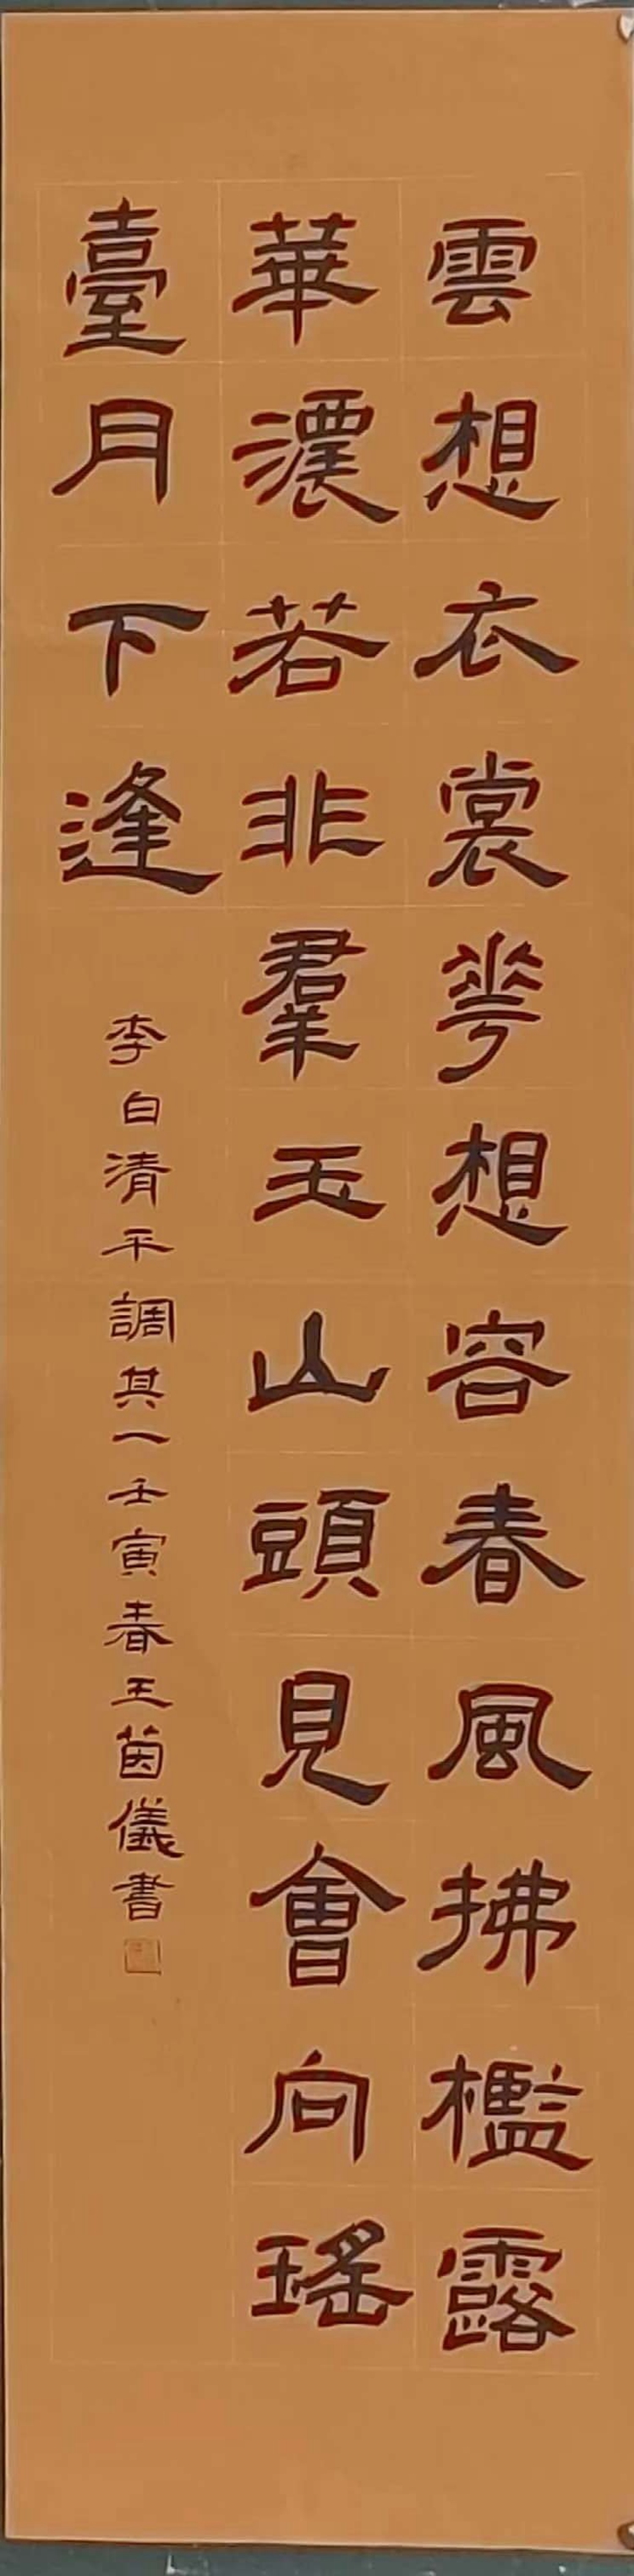 雲想衣裳花想容春風拂檻露
華濃若非羣玉山頭見會向瑤
臺月下逢
李白清平調其一壬寅春王茵儀書